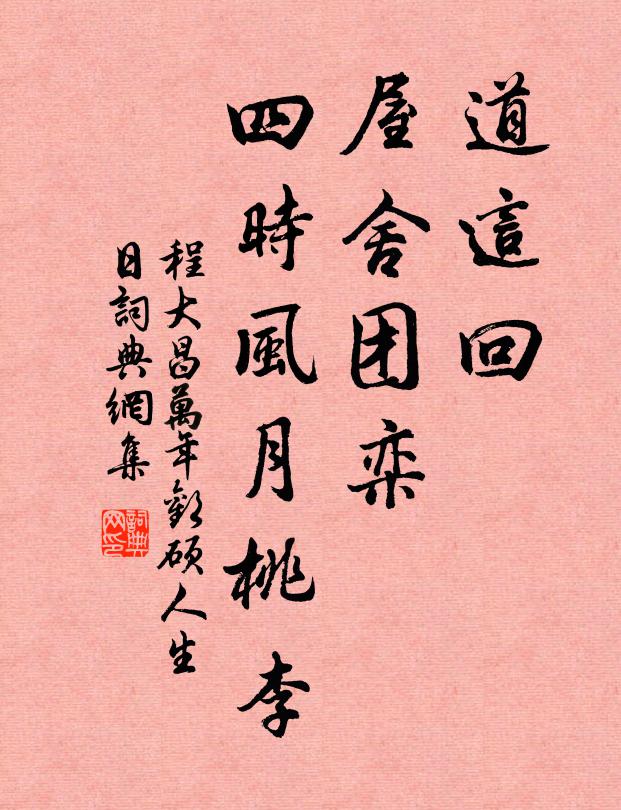 道這回
屋舍团栾
四時風月桃李
程大昌萬年歡碩人生
日詞典網集
詞典网印